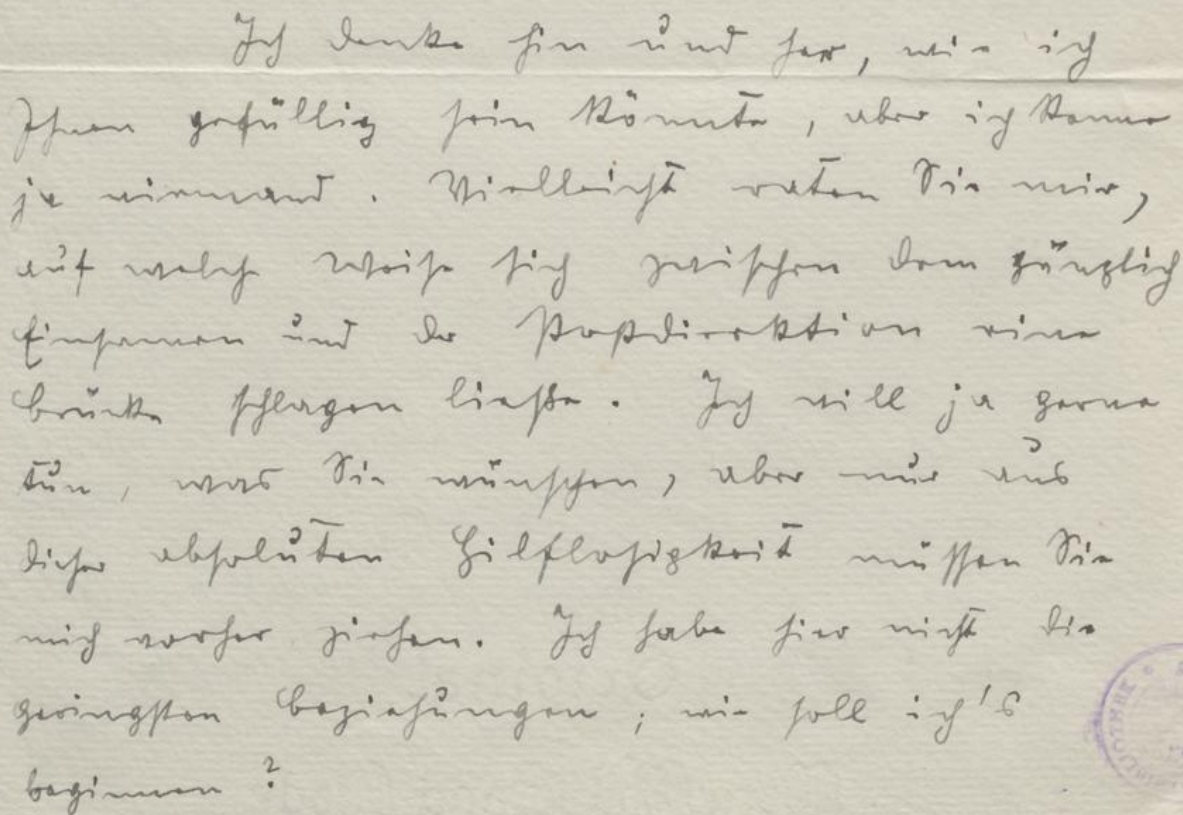 Ich denke hin und her, wie ich
Ihnen gefällig sein könnte, aber ich kenne
ja niemand. Vielleicht raten Sie mir,
auf welche Weise sich zwischen dem gänzlich
Einsamen und der Postdirektion eine
Brücke schlagen ließe. Ich will ja gerne
tun, was Sie wünschen, aber nur aus
dieser absoluten Hilflosigkeit müssen Sie
mich vorher ziehen. Ich habe hier nicht die
geringsten Beziehungen; wie soll ich's
beginnen?